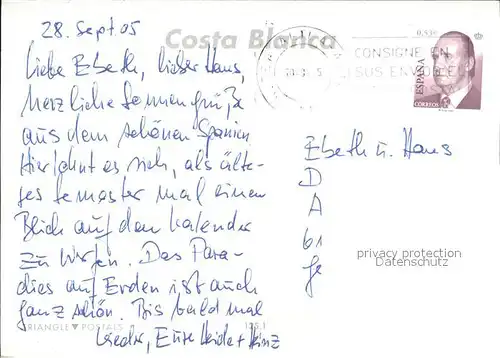 28. Sept. 05
Costa Blanca
Liebe Ebeth, lieber Hans,
herzliche Sonnengrüße
aus dem schönen Spanien
Hier lohnt es sich, als älte-
res Semester mal einen
Blick auf den Kalender
zu werfen. Das Para-
dies auf Erden ist auch
ganz schön. Bis bald mal
wieder, Eure Heide + Heinz
CONSIGNE EN
SUS ENVIOS EL
0,53€
ESPAÑA
CORREOS
Ebeth u. Hans
D
A
61
privacy protection
Datenschutz
TRIANGLE ▼ POSTALS